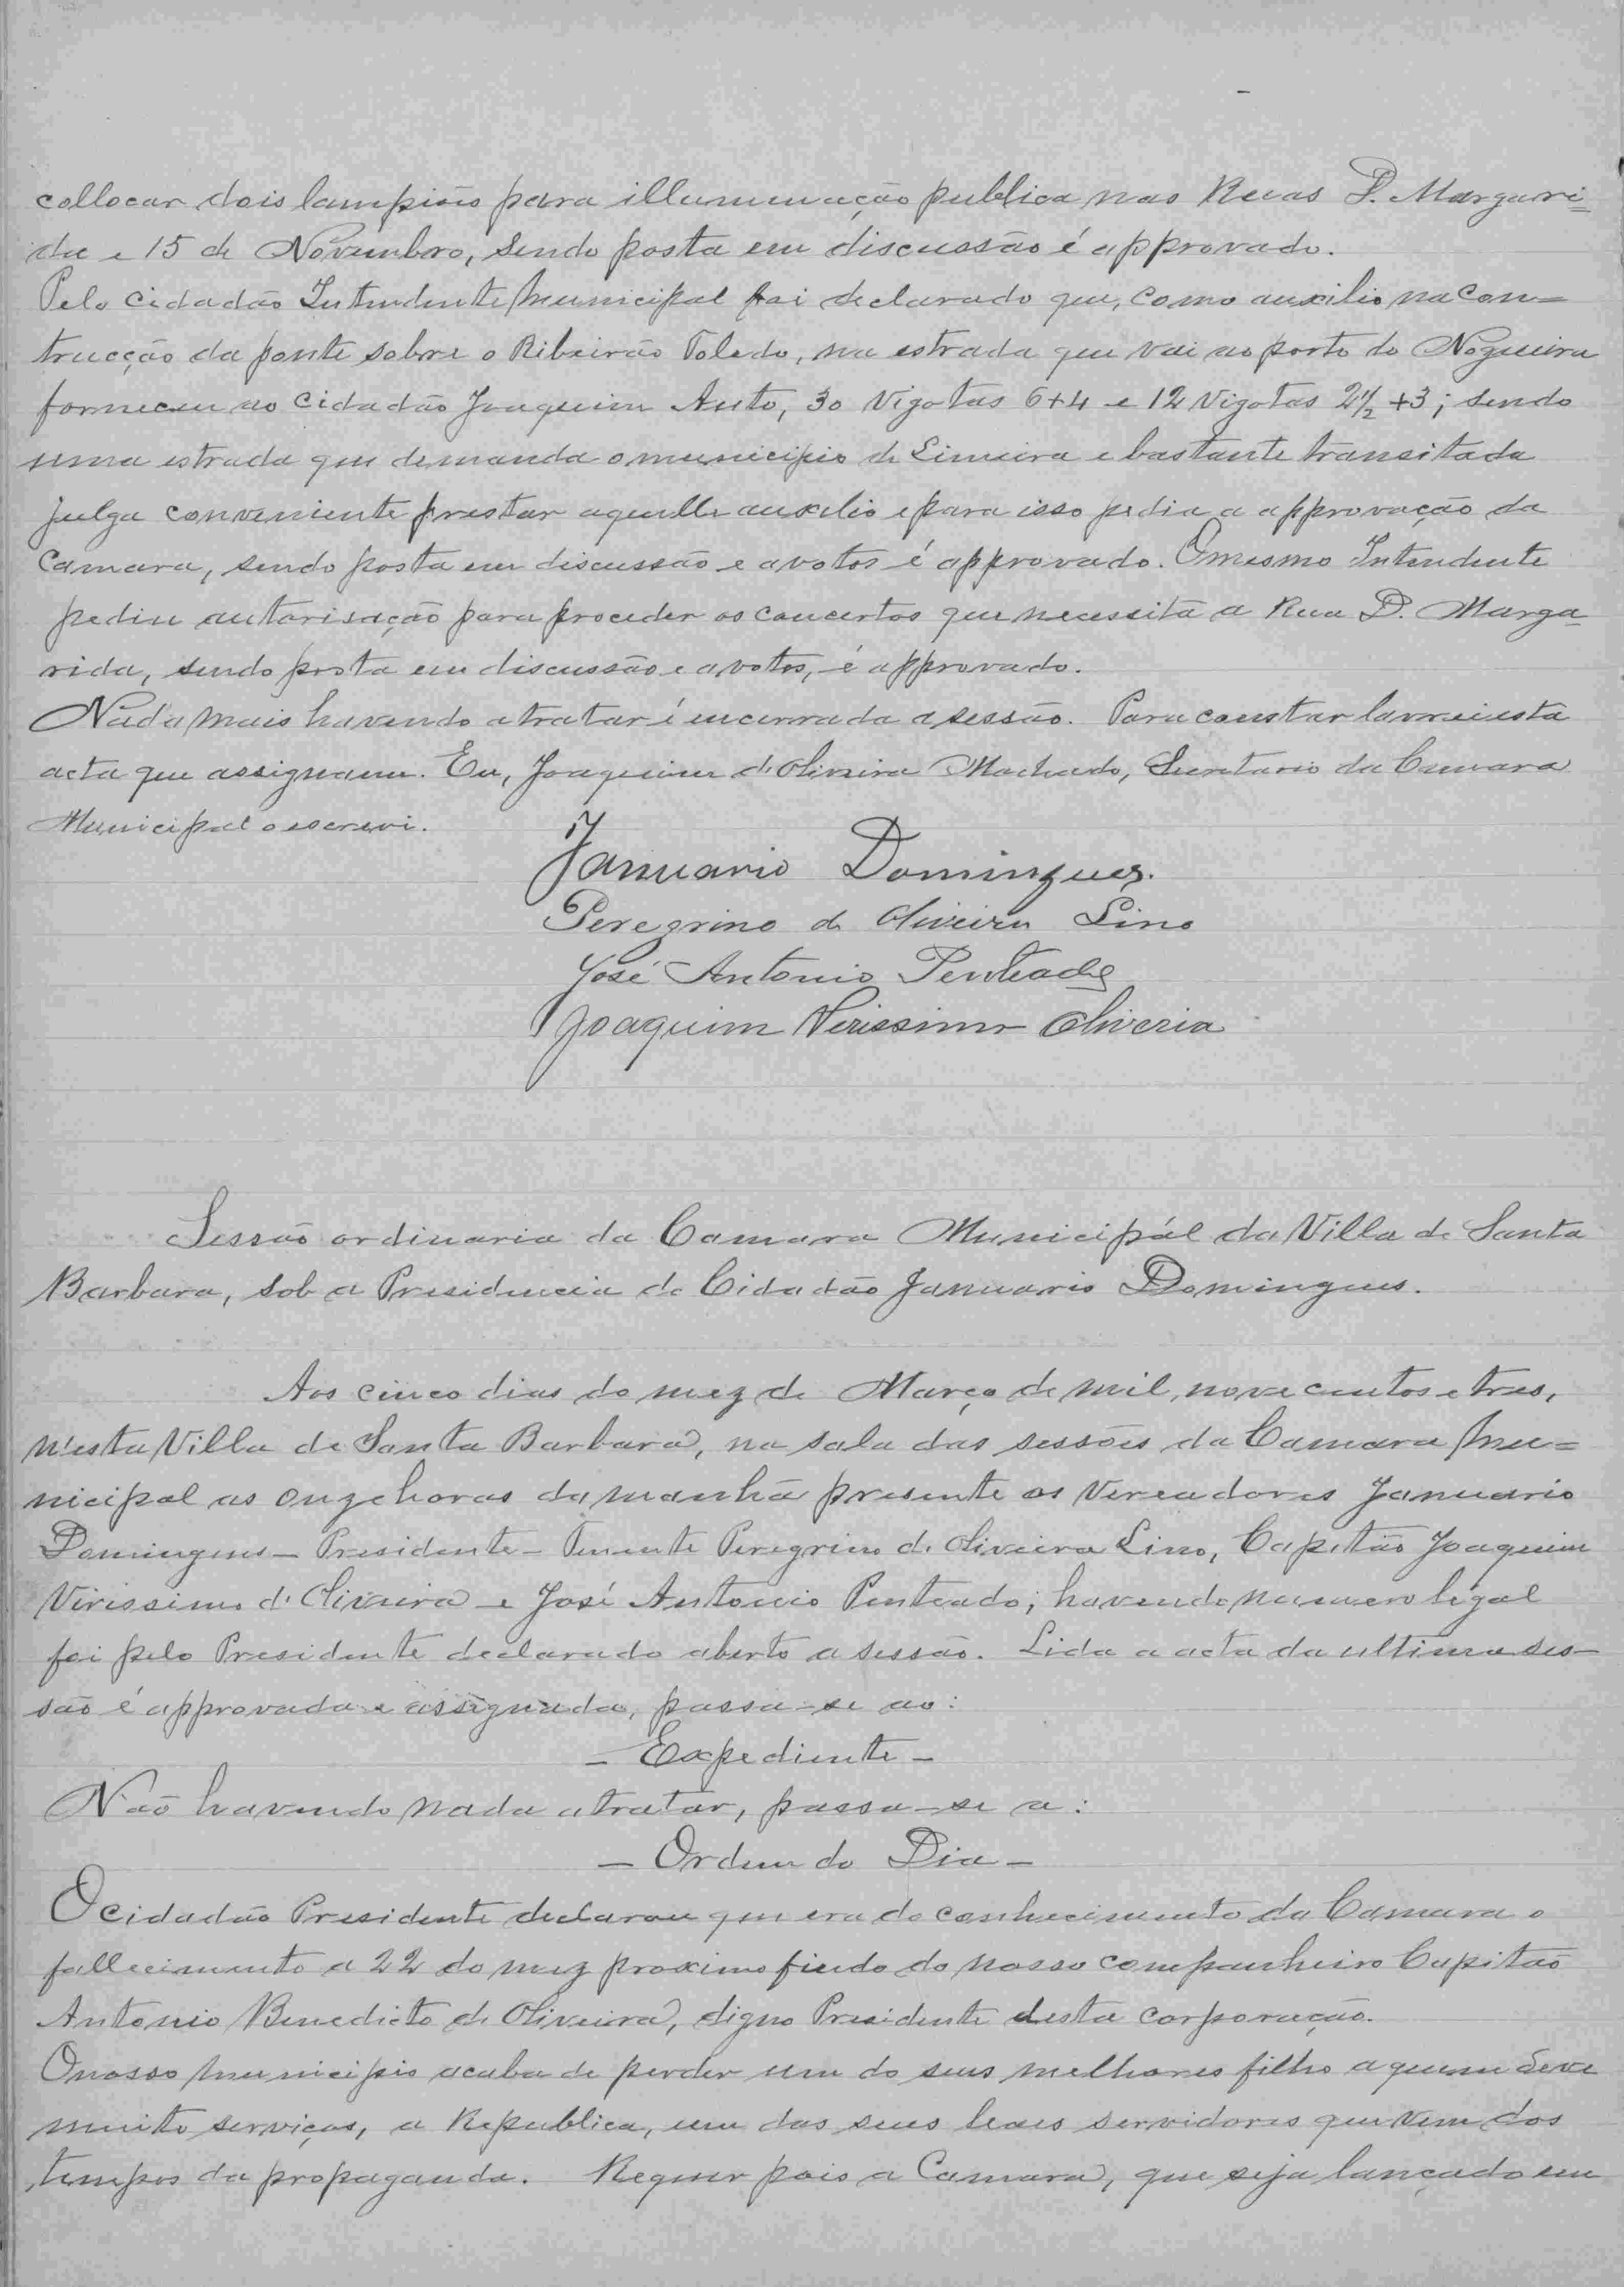 collocar dois lampiões para illuminação publica nas Ruas D. Margari=
da e 15 de Novembro, sendo posta em discussão é approvado.
Pelo cidadão Intendente Municipal foi declarado que, como auxilio na cons=
trucção da ponte sobre o Ribeirão Toledo, na estrada que vai ao porto do Nogueira
forneceu ao cidadão Joaquim 30 Vigotas 6+4 e 12 Vigotas 2½ +3; sendo
uma estrada que demanda o municipio de Limeira e bastante transitada
julga conveniente prestar aquelle auxilio e para isso pedia a approvação da
Camara, sendo posta em discussão e a votos é approvado. O mesmo Intendente
pediu autorisação para proceder os concertos que necessita a Rua D. Marga=
rida, sendo posta em discussão e a votos, é approvado.
Nada mais havendo a tratar é encerrada a sessão. Para constar lavrei esta
acta que assignam. Eu, Joaquim d'Oliveira Machado, Secretario da Camara
Municipal o escrevi.
Januario Domingues.
Peregrino de Oliveira Lino
José Antonio Penteado
Joaquim Verissimo Oliveria
Sessão ordinaria da Camara Municipál da Villa de Santa
Barbara, sob a Presidencia do Cidadão Januario Domingues.
Aos cinco dias do mez de Março de mil, nove centos e tres,
n'esta Villa de Santa Barbara, na sala das sessões da Camara Mu=
nicipal as onze horas da manhã presente os Vereadores Januario
Domingues – Presidente – Tenente Peregrino de Oliveira Lino, Capitão Joaquim
Virissimo d'Oliveira e José Antonio Penteado; havendo numero legal
foi pelo Presidente declarado aberto a sessão. Lida a acta da ultima ses–
são é approvada e assignada, passa-se ao:
– Expediente –
Não havendo nada a tratar, passa-se a:
– Ordem do Dia –
O cidadão Presidente declarou que era do conhecimento da Camara o
fallecimento a 22 do mez proximo findo do nosso companheiro Capitão
Antonio Benedicto de Oliveira, digno Presidente desta corporação.
O nosso Municipio acaba de perder um do seus melhores filho a quem deve
muito serviços, a Republica, um dos seus leaes servidores que vem dos
tempos da propaganda. Requer pois a Camara, que seja lançado em